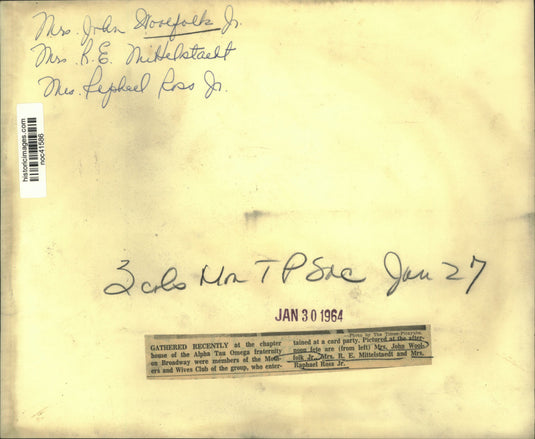 Mrs. John Woolfolk Jr.
Mrs. R.E. Mittelstaedt
Mrs. Raphael Ross Jr.
historicimages.com
noc41586
3 cols Mon TP Soc Jan 27
JAN 30 1964
Photo by The Times-Picayune.
GATHERED RECENTLY at the chapter
house of the Alpha Tau Omega fraternity
on Broadway were members of the Moth-
ers and Wives Club of the group, who enter-
tained at a card party. Pictured at the after-
noon fete are (from left) Mrs. John Wool-
folk Jr., Mrs. R. E. Mittelstaedt and Mrs.
Raphael Ross Jr.